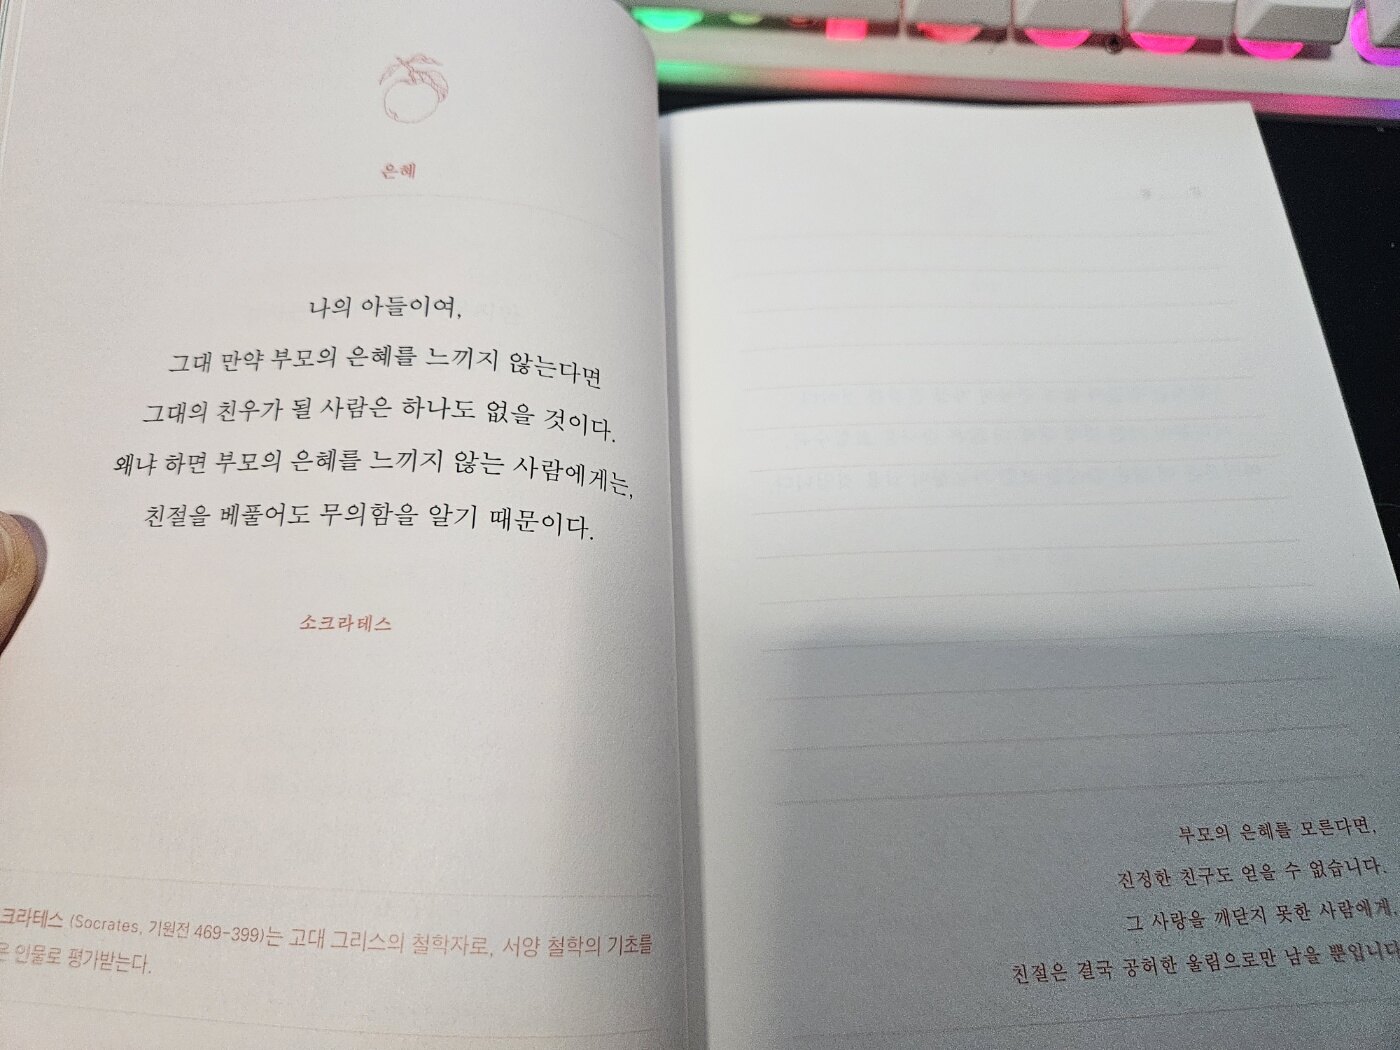 은혜
나의 아들이여,
그대 만약 부모의 은혜를 느끼지 않는다면
그대의 친우가 될 사람은 하나도 없을 것이다.
왜냐 하면 부모의 은혜를 느끼지 않는 사람에게는,
친절을 베풀어도 무의함을 알기 때문이다.
소크라테스
크라테스 (Socrates, 기원전 469-399)는 고대 그리스의 철학자로, 서양 철학의 기초를
은 인물로 평가받는다.
부모의 은혜를 모른다면,
진정한 친구도 얻을 수 없습니다.
그 사랑을 깨닫지 못한 사람에게
친절은 결국 공허한 울림으로만 남을 뿐입니다